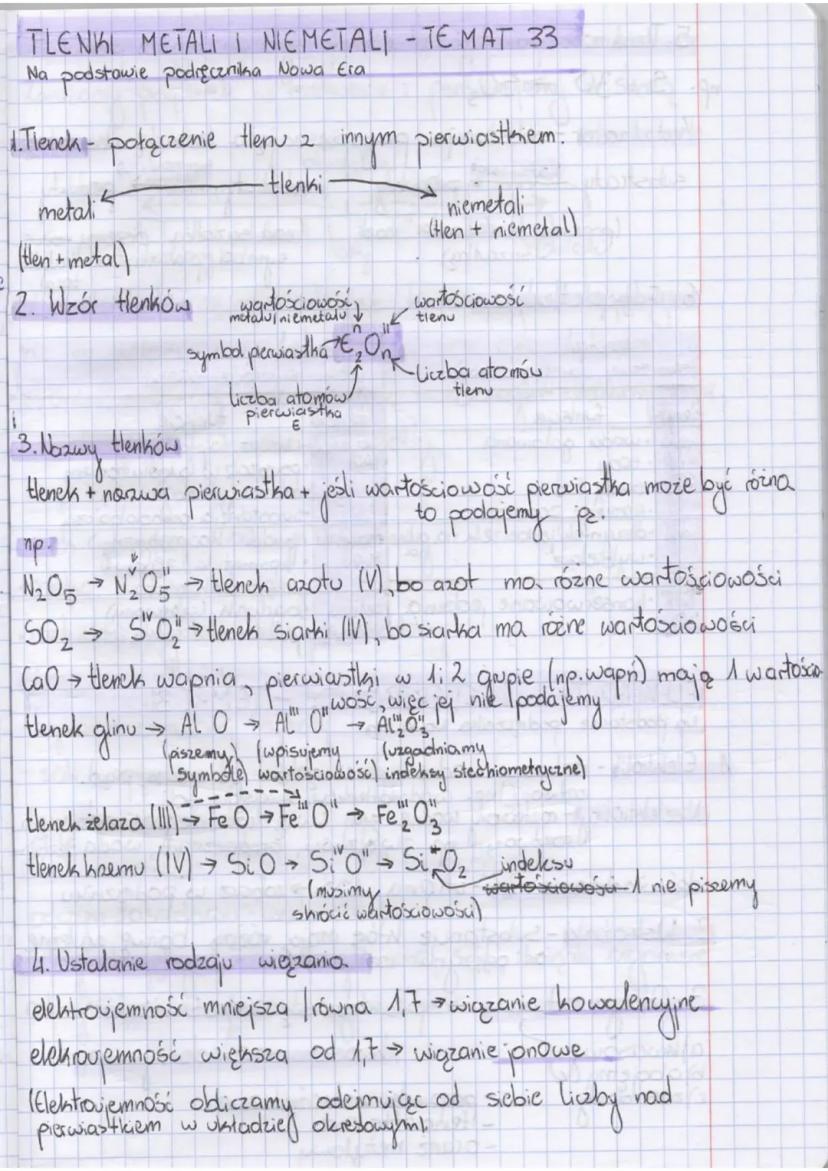 TLENKI METALI I NIEMETALI - TEMAT 33
Na podstawie podręcznika Nowa Era
1. Tlenek - połączenie tlenu z innym pierwiastkiem.
tlenki
metali
niemetali
(tlen + niemetal)
(tlen + metal)
2. Wzór tlenków
wartościowość metalu/niemetalu
wartościowość tlenu
symbol pierwiastka
E₂ⁿOₙᴵᴵ
liczba atomów tlenu
liczba atomów pierwiastka E
3. Nazwy tlenków
tlenek + nazwa pierwiastka + jeśli wartościowość pierwiastka może być różna
to podajemy ją.
np.
N₂O₅ → N₂ⱽO₅ᴵᴵ → tlenek azotu (V), bo azot ma różne wartościowości
SO₂ → Sᴵⱽ O₂ᴵᴵ → tlenek siarki (IV), bo siarka ma różne wartościowości
CaO → tlenek wapnia, pierwiastki w 1 i 2 grupie (np. wapń) mają 1 wartościo-
wość, więc jej nie podajemy
tlenek glinu → Al O → Alᴵᴵᴵ Oᴵᴵ → Al₂ᴵᴵᴵO₃ᴵᴵ
(piszemy symbole) (wpisujemy wartościowość) (uzgadniamy indeksy stechiometryczne)
tlenek żelaza (III) → Fe O → Feᴵᴵᴵ Oᴵᴵ → Fe₂ᴵᴵᴵ O₃ᴵᴵ
tlenek krzemu (IV) → Si O → Siᴵⱽ Oᴵᴵ → Si O₂
indeksu
wartościowości 1 nie piszemy
(musimy skrócić wartościowości)
4. Ustalanie rodzaju wiązania
elektroujemność mniejsza / równa 1,7 → wiązanie kowalencyjne
elekroujemność większa od 1,7 → wiązanie jonowe
(Elektroujemność obliczamy odejmując od siebie liczby nad
pierwiastkiem w układzie okresowym).